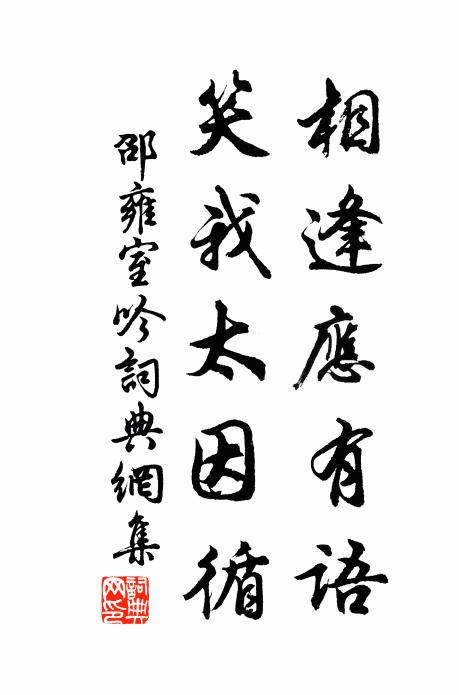 相逢應有語
笑我太因循
邵雍室吟詞典網集
詞典網印